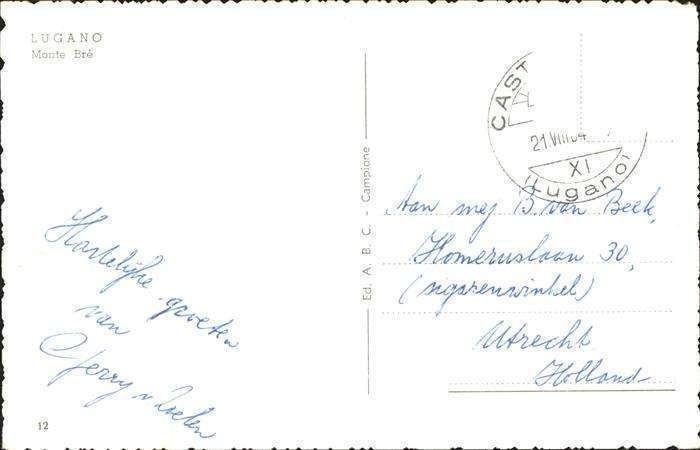 LUGANO
Monte Brè
Hartelijke groeten
van
Gerry v.
12
Ed. A. B. C. - Campione
CAST
21.VIII.64
XI
(Lugano)
Aan mej B. van Beek,
Homeruslaan 30,
(sigarenwinkel)
Utrecht
Holland